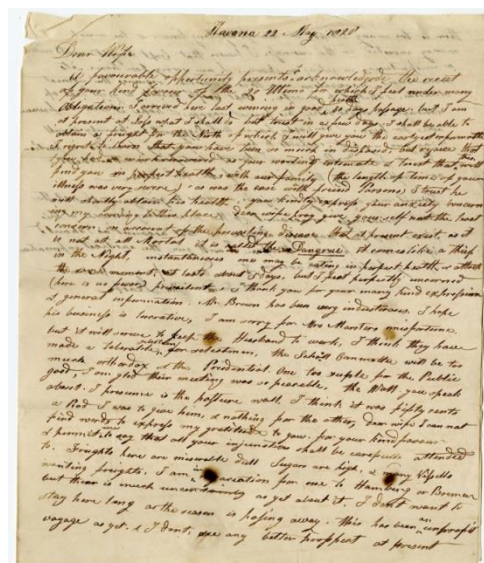 Havana 22 May 1828
Dear Wife
A favourable opportunity presents to acknowledge the receit
of your kind favour of the 20 Ultimo for which I feel under many
Obligations I arrived here last evening in good health 20 days passage, but I am
at present at Loss what I shall do but trust in a few days, I shall be able to
obtain a freight for the North of which I will give you the earlyest information
I regret to learn that you have been so much in distress, but rejoice that
you are as your writing intimate & trust that will
find you in perfect health, with our family (the length of time of your
illness was very severe) as was the case with friend Parsons I trust he
will shortly obtain his health. you kindly express your anxiety concern
ing my coming to this place, dear wife pray give your self not the least
concern on account of the prevailing disease that at present exist, as it
is not at all Mortal it is called the Dangrue it comes like a thief
in the Night, instantaneous one may be eating in perfect health, & attack
the next moment, it lasts about 3 days, but I feel perfectly unconcerned
(here is no fever prevalent) I thank you for your many kind expressions
& general information Mr. Brown has been very industerous. I hope
his business is lucrative, I am sorry for Mrs Marsters misfortune
but it will serve to keep the Husband to work, I think they have
made a tolerable for selectmen, the School Committe will be too
much orthodox & the Prudential One too supple for the Public
good, I am glad their meeting was so peaceable, the Wall you speak
about. I presume is the pasture wall I think it was fifty cents
a Rod I was to give him, & nothing for the other, dear wife I am not
find words to express my gratitude to you, for your kind favour
& permit me to say that all your injunctions shall be carefully attended
to. Freights here are miserable dull Sugars are high, & many Vessells
wanting freights. I am in for me to Hamburg or Bremen
but there is much uncertainty as yet about it. I dont want to
stay here long as the season is passing away. this has been an unprofit
voyage as yet. & I dont see any better prospect at present